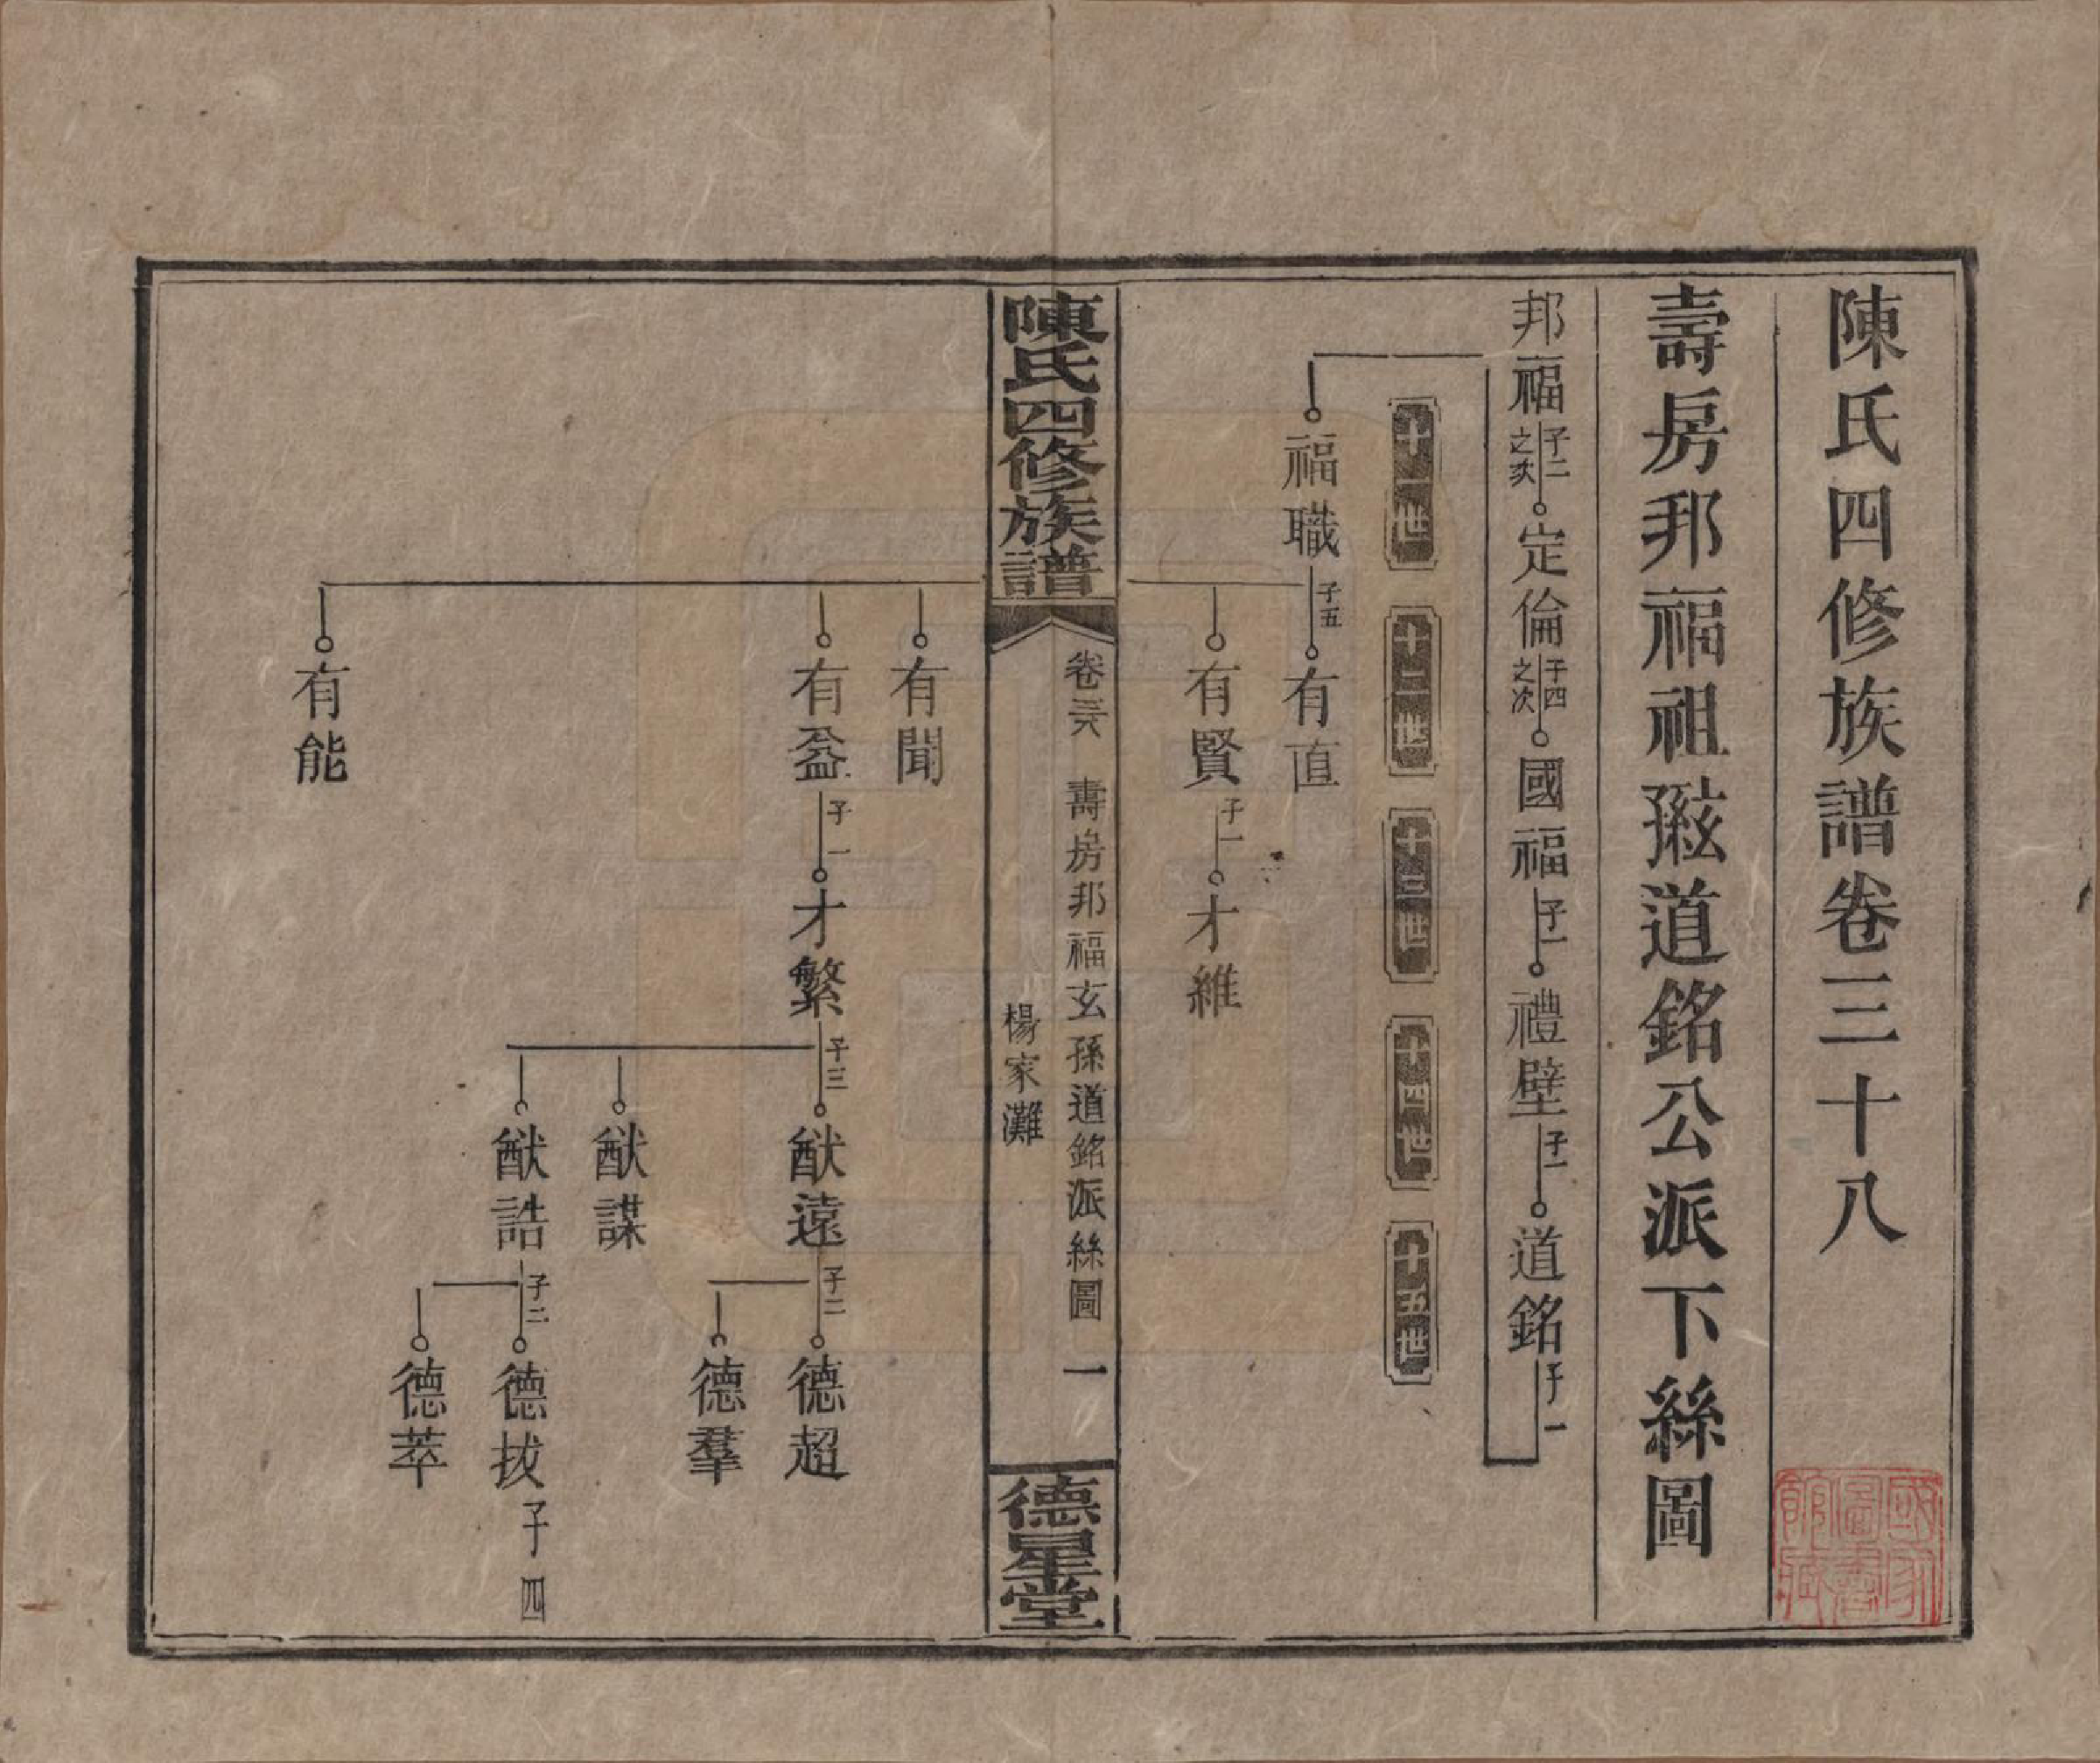 陳氏四修族譜卷三十八
壽房邦福祖𤣥孫道銘公派下絲圖
邦福 子二之次 定倫 子四之次 國福 子一 禮壁 子一 道銘 子一
十一世 十二世 十三世 十四世 十五世
福職 子五 有直
有賢 子一 才維
陳氏四修族譜 卷三八 壽房邦福玄孫道銘派絲圖 一 德星堂
楊家灘
有聞
有益 子一 才繁 子三 猷遠 子二 德超
德羣
猷謀
猷誥 子二 德拔 子四
德萃
有能
國家圖書館藏